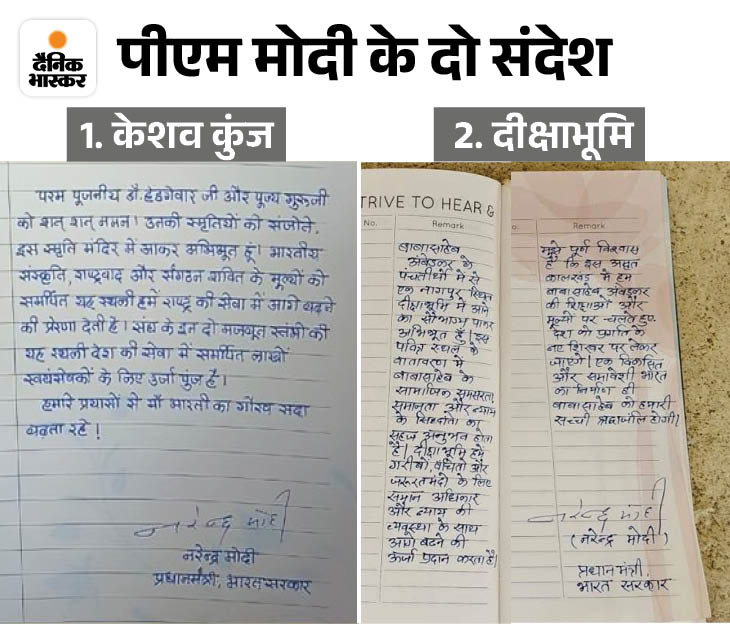 दैनिक
भास्कर
पीएम मोदी के दो संदेश
1. केशव कुंज
परम पूजनीय डॉ. हेडगेवार जी और पूज्य गुरुजी
को शत् शत् नमन। उनकी स्मृतियों को संजोते,
इस स्मृति मंदिर में आकर अभिभूत हूं। भारतीय
संस्कृति, राष्ट्रवाद और संगठन शक्ति के मूल्यों को
समर्पित यह स्थली हमें राष्ट्र की सेवा में आगे बढ़ने
की प्रेरणा देती है। संघ के इन दो मजबूत स्तंभों की
यह स्थली देश की सेवा में समर्पित लाखों
स्वयंसेवकों के लिए उर्जा पुंज है।
हमारे प्रयासों से माँ भारती का गौरव सदा
बढ़ता रहे!
नरेन्द्र मोदी
नरेन्द्र मोदी
प्रधानमंत्री, भारत सरकार
2. दीक्षाभूमि
TRIVE TO HEAR &
No. Remark
बाबासाहेब
अंबेडकर के
पंचतीर्थों में से
एक नागपुर स्थित
दीक्षाभूमि में आने
का सौभाग्य पाकर
अभिभूत हूँ। इस
पवित्र स्थल के
वातावरण में
बाबासाहेब के
सामाजिक समरसता,
समानता और न्याय
के सिद्धांतों का
सहज अनुभव होता
है। दीक्षाभूमि हमें
गरीबों, वंचितों और
जरूरतमंदों के लिए
समान अधिकार
और न्याय की
व्यवस्था के साथ
आगे बढ़ने की
ऊर्जा प्रदान करता है।
o. Remark
मुझे पूर्ण विश्वास
है कि इस अमृत
कालखंड में हम
बाबासाहेब अंबेडकर
की शिक्षाओं और
मूल्यों पर चलते हुए
देश को प्रगति के
नए शिखर पर लेकर
जाएंगे। एक विकसित
और समावेशी भारत
का निर्माण ही
बाबासाहेब को हमारी
सच्ची श्रद्धांजलि होगी।
नरेन्द्र मोदी
(नरेन्द्र मोदी)
प्रधानमंत्री,
भारत सरकार